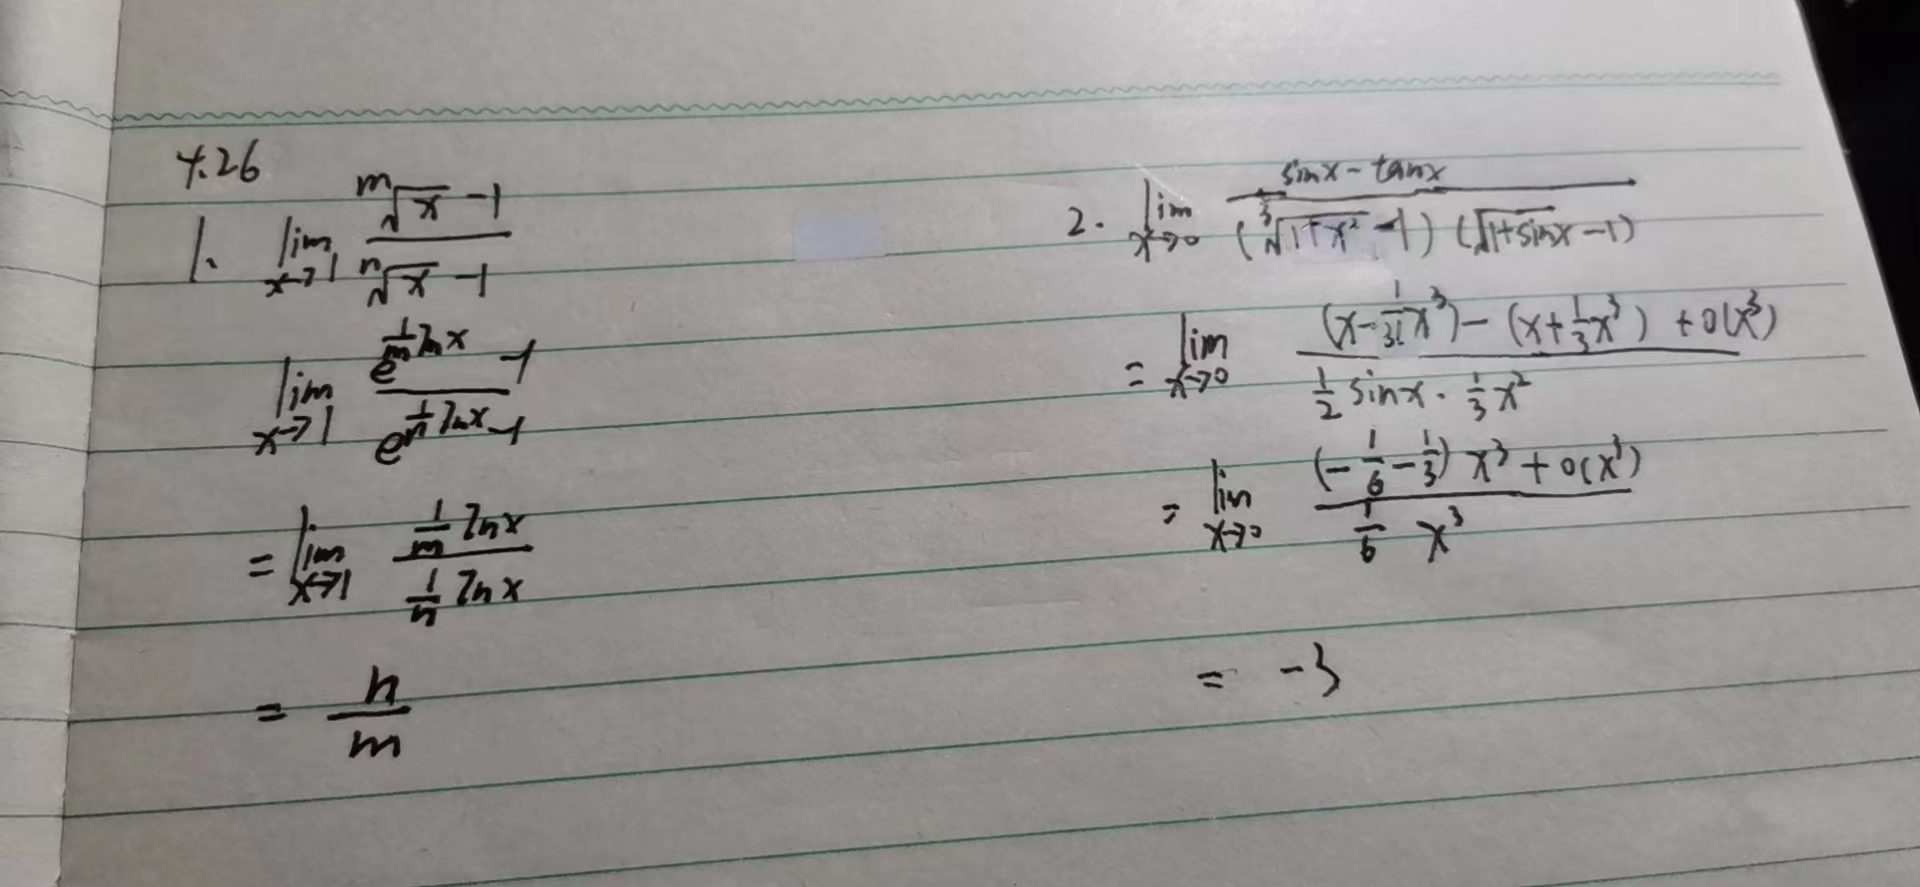 4.26
1. lim x→1 (ᵐ√x -1)/(ⁿ√x -1)
lim x→1 (e^(1/m lnx) -1)/(e^(1/n lnx) -1)
= lim x→1 (1/m lnx)/(1/n lnx)
= n/m
2. lim x→0 (sinx - tanx)/((³√(1+x²) -1)(√(1+sinx) -1))
= lim x→0 ((x - 1/3! x³) - (x + 1/3 x³) + o(x³))/(1/2 sinx · 1/3 x²)
= lim x→0 ((-1/6 - 1/3) x³ + o(x³))/(1/6 x³)
= -3